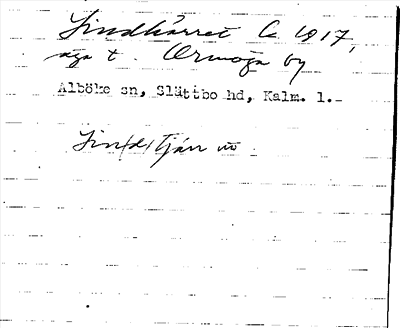 Lindkärret Ca 1917,
äga t. Ormöga by
Alböke sn, Slättbo hd, Kalm. l.-
Lin(d)tjärr